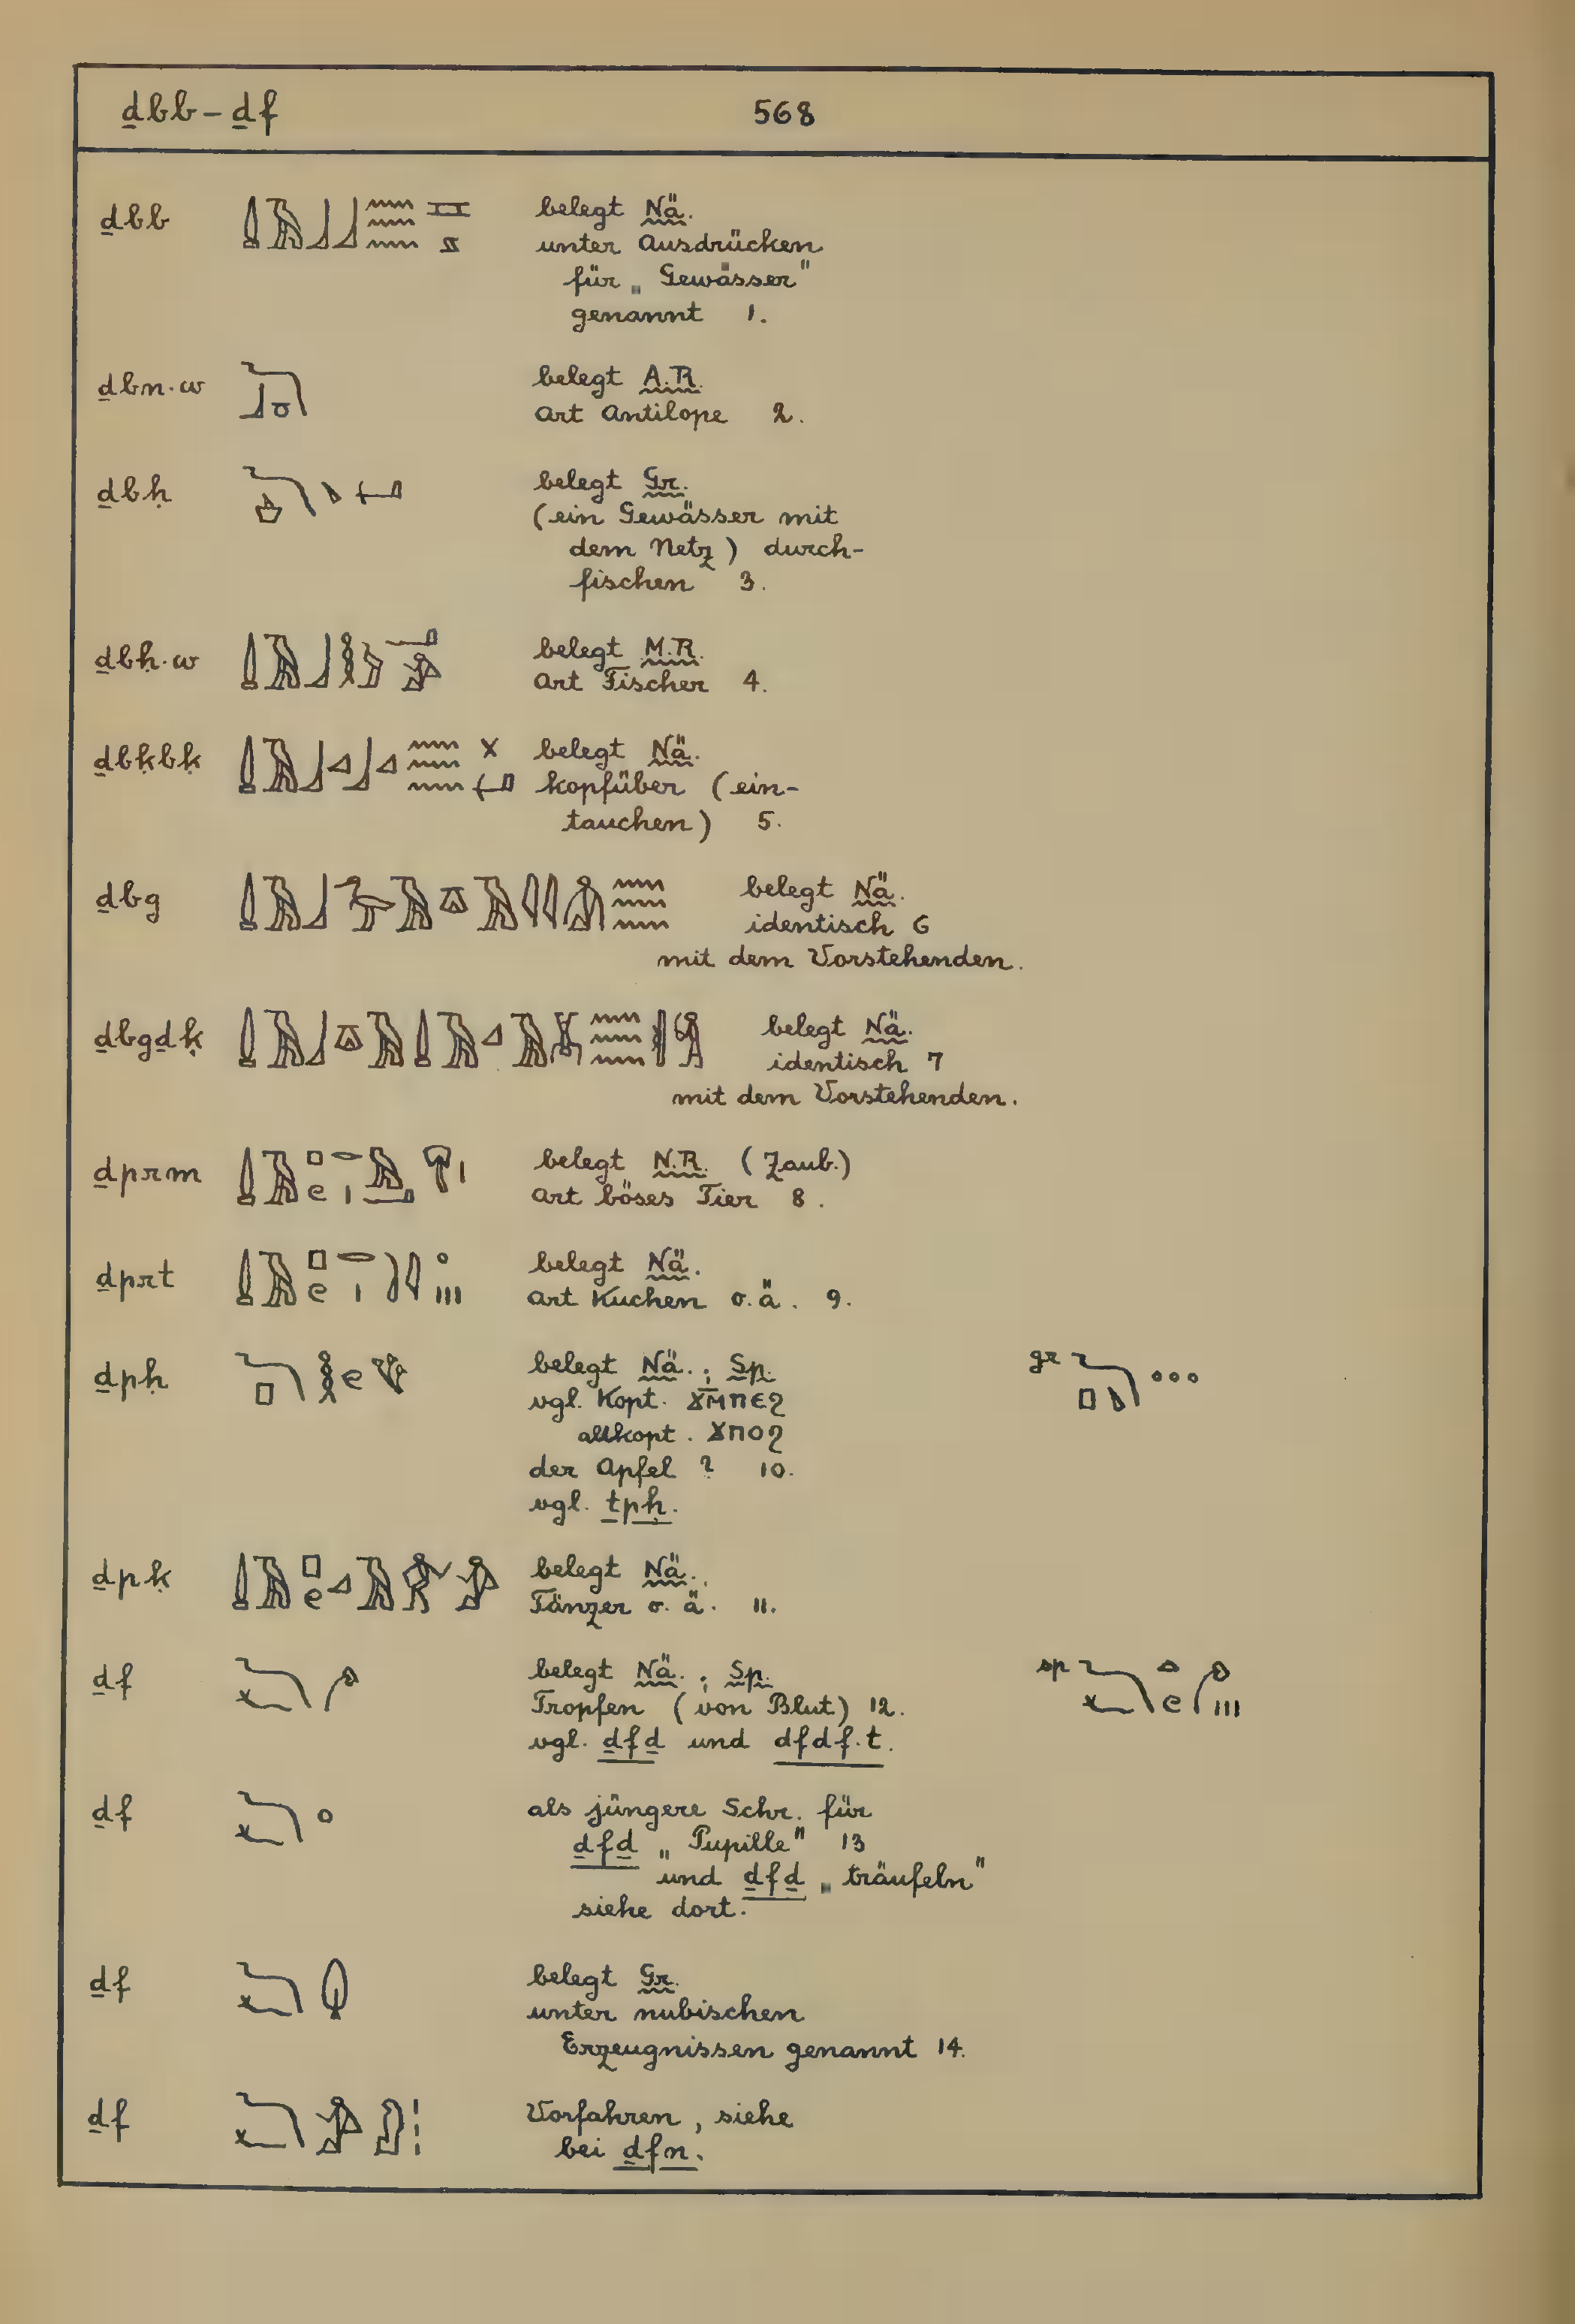 ḏbb – ḏf 568
ḏbb belegt Nä.
unter Ausdrücken
für „Gewässer"
genannt 1.
ḏbn.w belegt A.R.
Art Antilope 2.
ḏbḥ belegt Gr.
(ein Gewässer mit
dem Netz) durch-
fischen 3.
ḏbḥ.w belegt M.R.
Art Fischer 4.
ḏbḳbḳ belegt Nä.
kopfüber (ein-
tauchen) 5.
ḏbg belegt Nä.
identisch 6
mit dem Vorstehenden.
ḏbgḏḳ belegt Nä.
identisch 7
mit dem Vorstehenden.
ḏprm belegt N.R. (Zaub.)
Art böses Tier 8.
ḏprt belegt Nä.
Art Kuchen o.ä. 9.
ḏpḥ belegt Nä.; Sp. gr
vgl. Kopt. ϪⲘ̅ⲠⲈϨ
altkopt. ϪⲠⲞϨ
der Apfel? 10.
vgl. ṯpḥ.
ḏpḳ belegt Nä.
Tänzer o.ä. 11.
ḏf belegt Nä.; Sp. sp
Tropfen (von Blut) 12.
vgl. ḏfḏ und dfdf.t.
ḏf als jüngere Schr. für
ḏfḏ „Pupille" 13
und ḏfḏ „träufeln"
siehe dort.
ḏf belegt Gr.
unter nubischen
Erzeugnissen genannt 14.
ḏf Vorfahren, siehe
bei ḏfn.